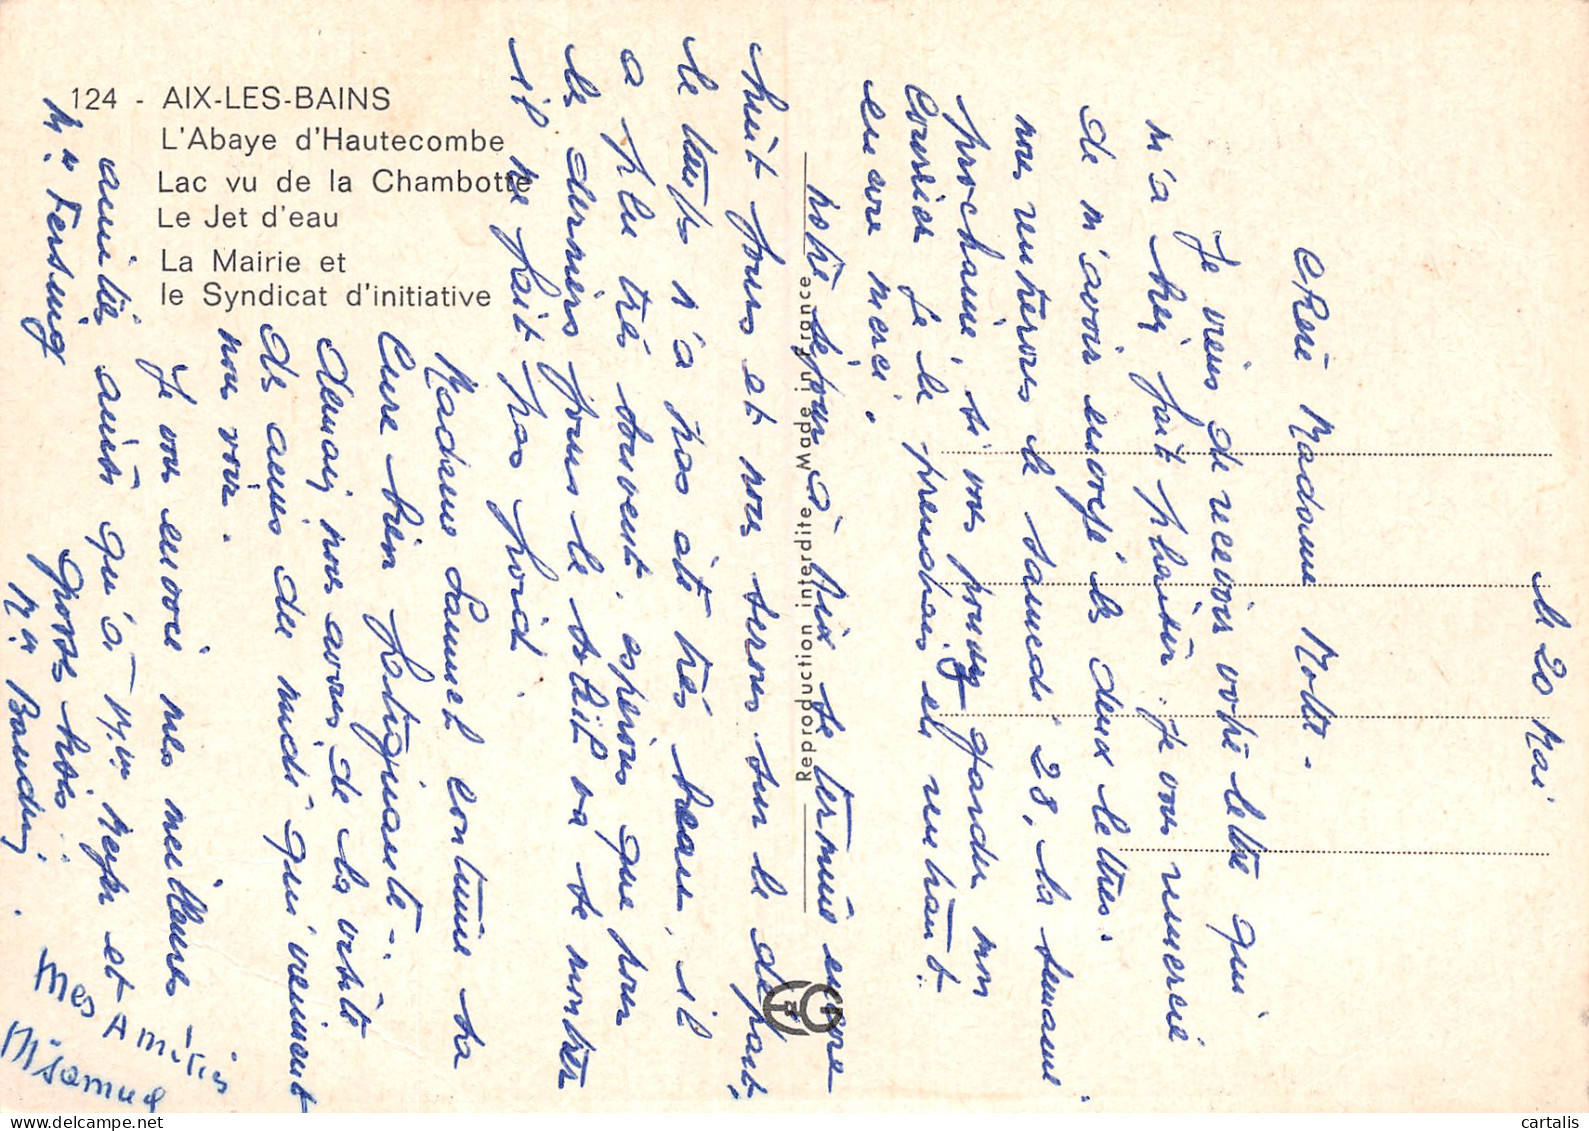 124 - AIX-LES-BAINS
L'Abaye d'Hautecombe
Lac vu de la Chambotte
Le Jet d'eau
La Mairie et
le Syndicat d'initiative
Reproduction interdite Made in France
le 20 Mai
chère Madame
Je viens de recevoir votre lettre qui
m'a très fait plaisir. Je vous remercie
de m'avoir envoyé les deux lettres.
nous rentrons le samedi 28, la semaine
prochaine, si vous pouvez garder mon
Courrier je le prendrais en rentrant.
encore merci.
notre séjour à Aix se termine encore
huit jours et nous serons sur le départ,
le temps n'a pas été très beau, il
a plu très souvent, espérons que pour
les derniers jours le soleil va se montrer
il ne fait pas froid.
Madame Samuel continue sa
Cure bien fatiguante.
demain nous avons de la visite
des amis du midi qui viennent
nous voir.
Je vous envoie mes meilleures
amitiés ainsi qu'à et
Mes Amitiés
Msamuel
cartalis